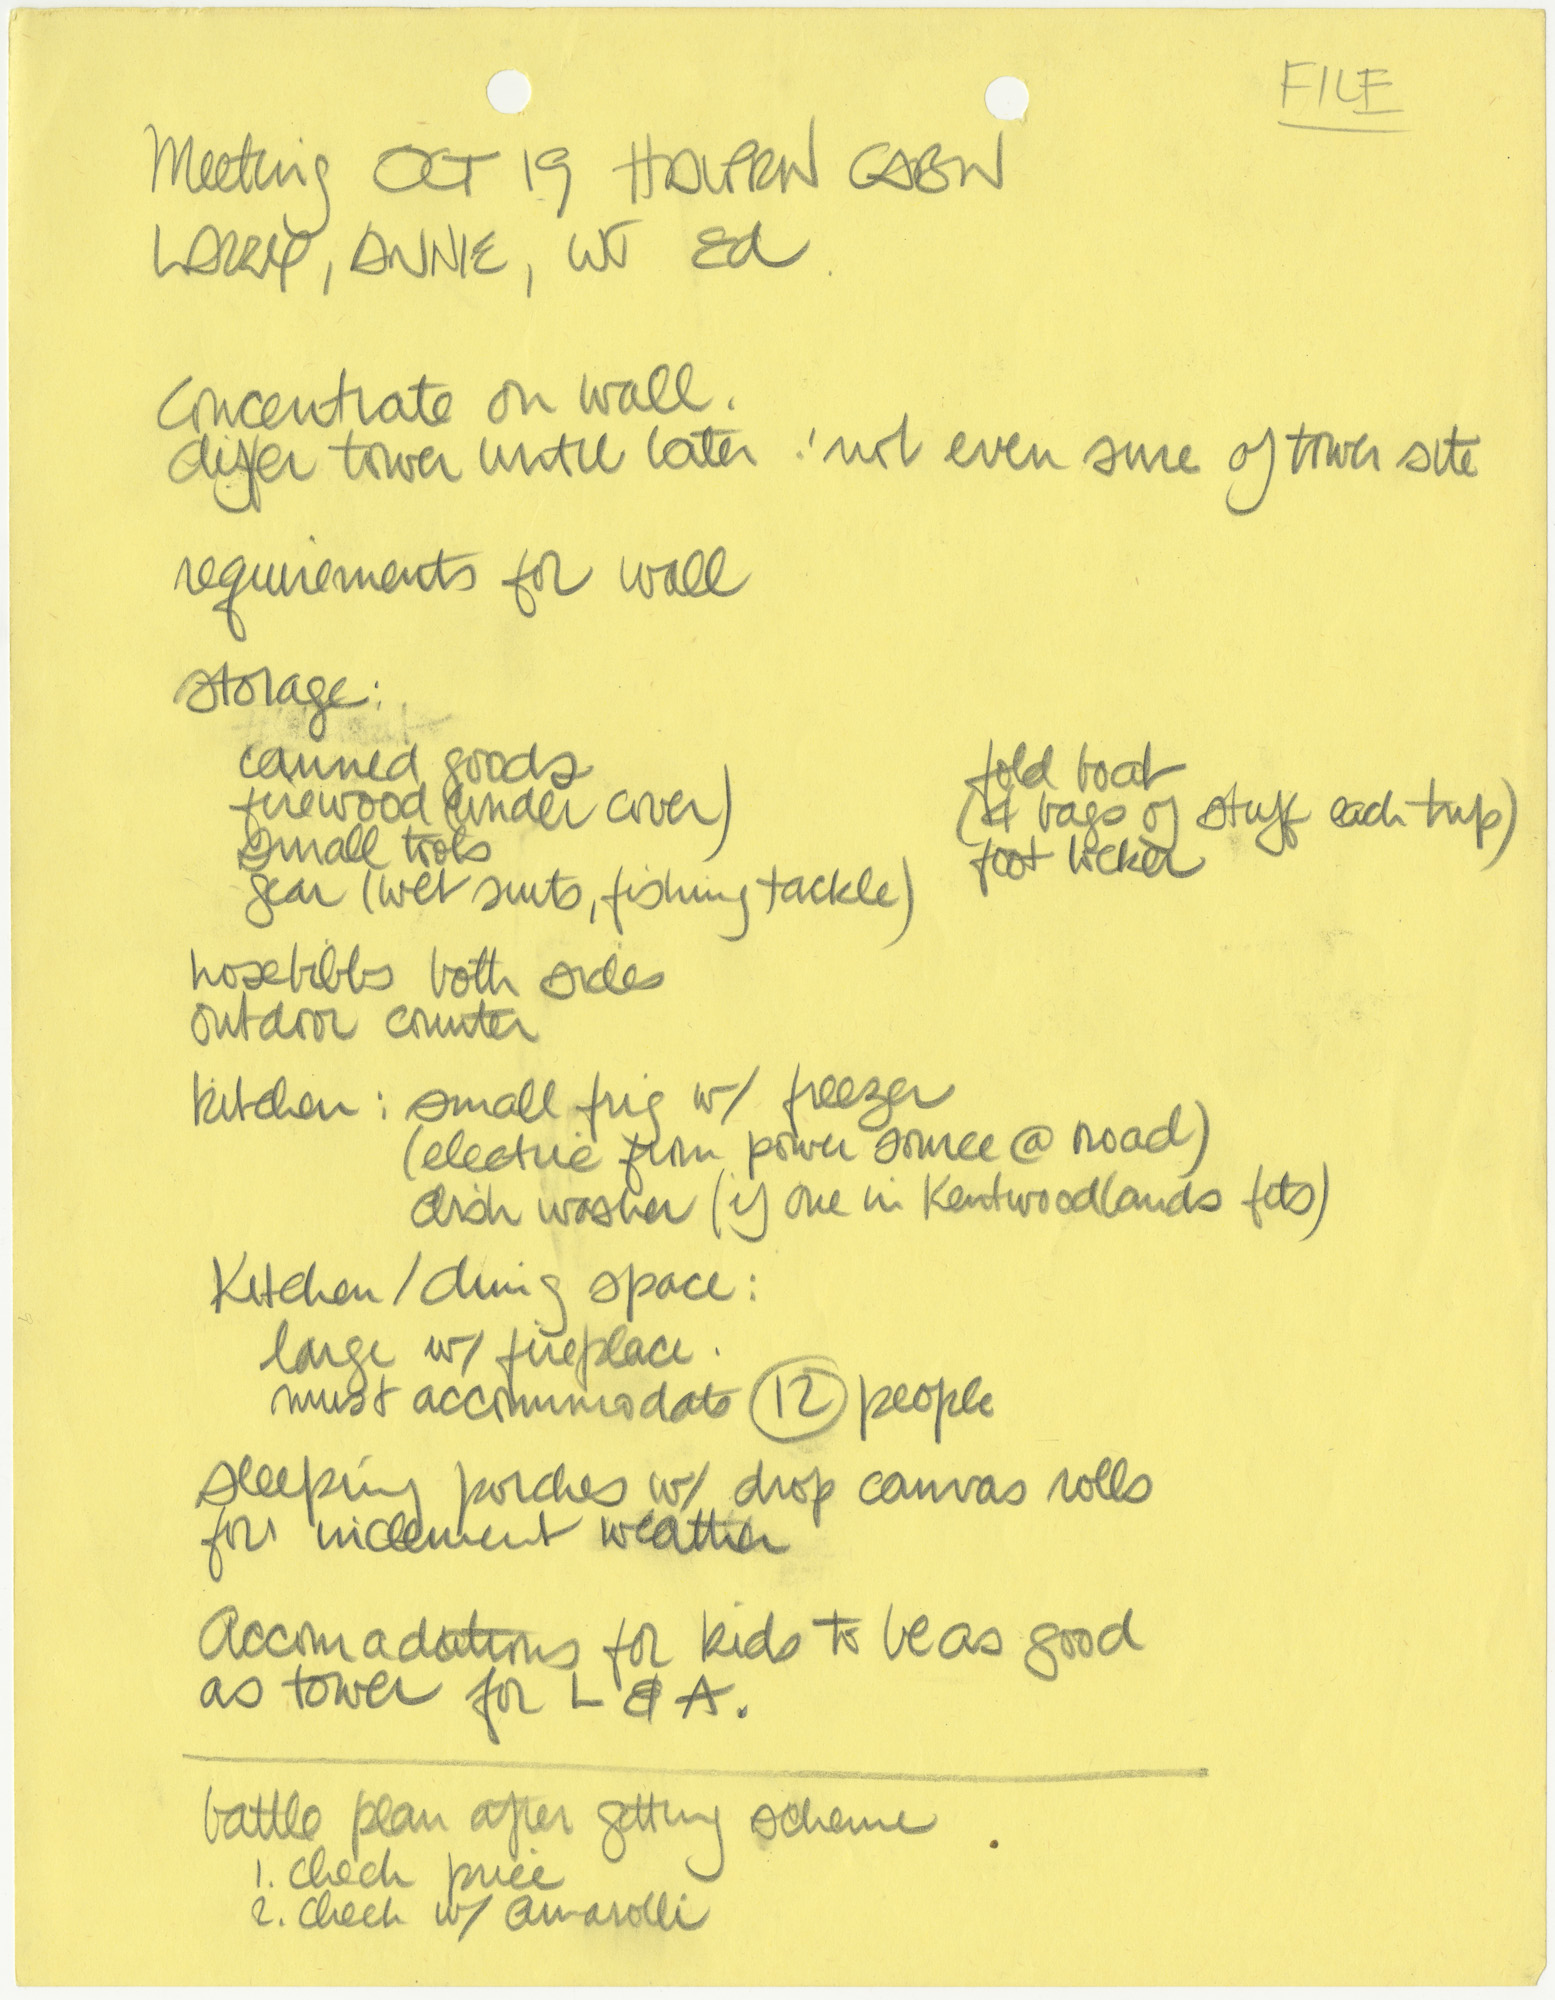 FILE
Meeting OCT 19 HALPRIN CABIN
LARRY, ANNIE, WT Ed
Concentrate on wall.
differ tower until later : not even sure of tower site
requirements for wall
storage:
canned goods
firewood (under cover)
small tools
gear (wet suits, fishing tackle)
fold boat
(4 bags of stuff each trip)
foot locker
hosebibbs both sides
outdoor counter
kitchen: small frig w/ freezer
(electric from power source @ road)
dish washer (if one in Kentwoodlands fits)
Kitchen/dining space:
large w/ fireplace.
must accommodate 12 people
sleeping porches w/ drop canvas rolls
for inclement weather
Accomadations for kids to be as good
as tower for L & A.
battle plan after getting scheme
1. check price
2. check w/ Amarolli